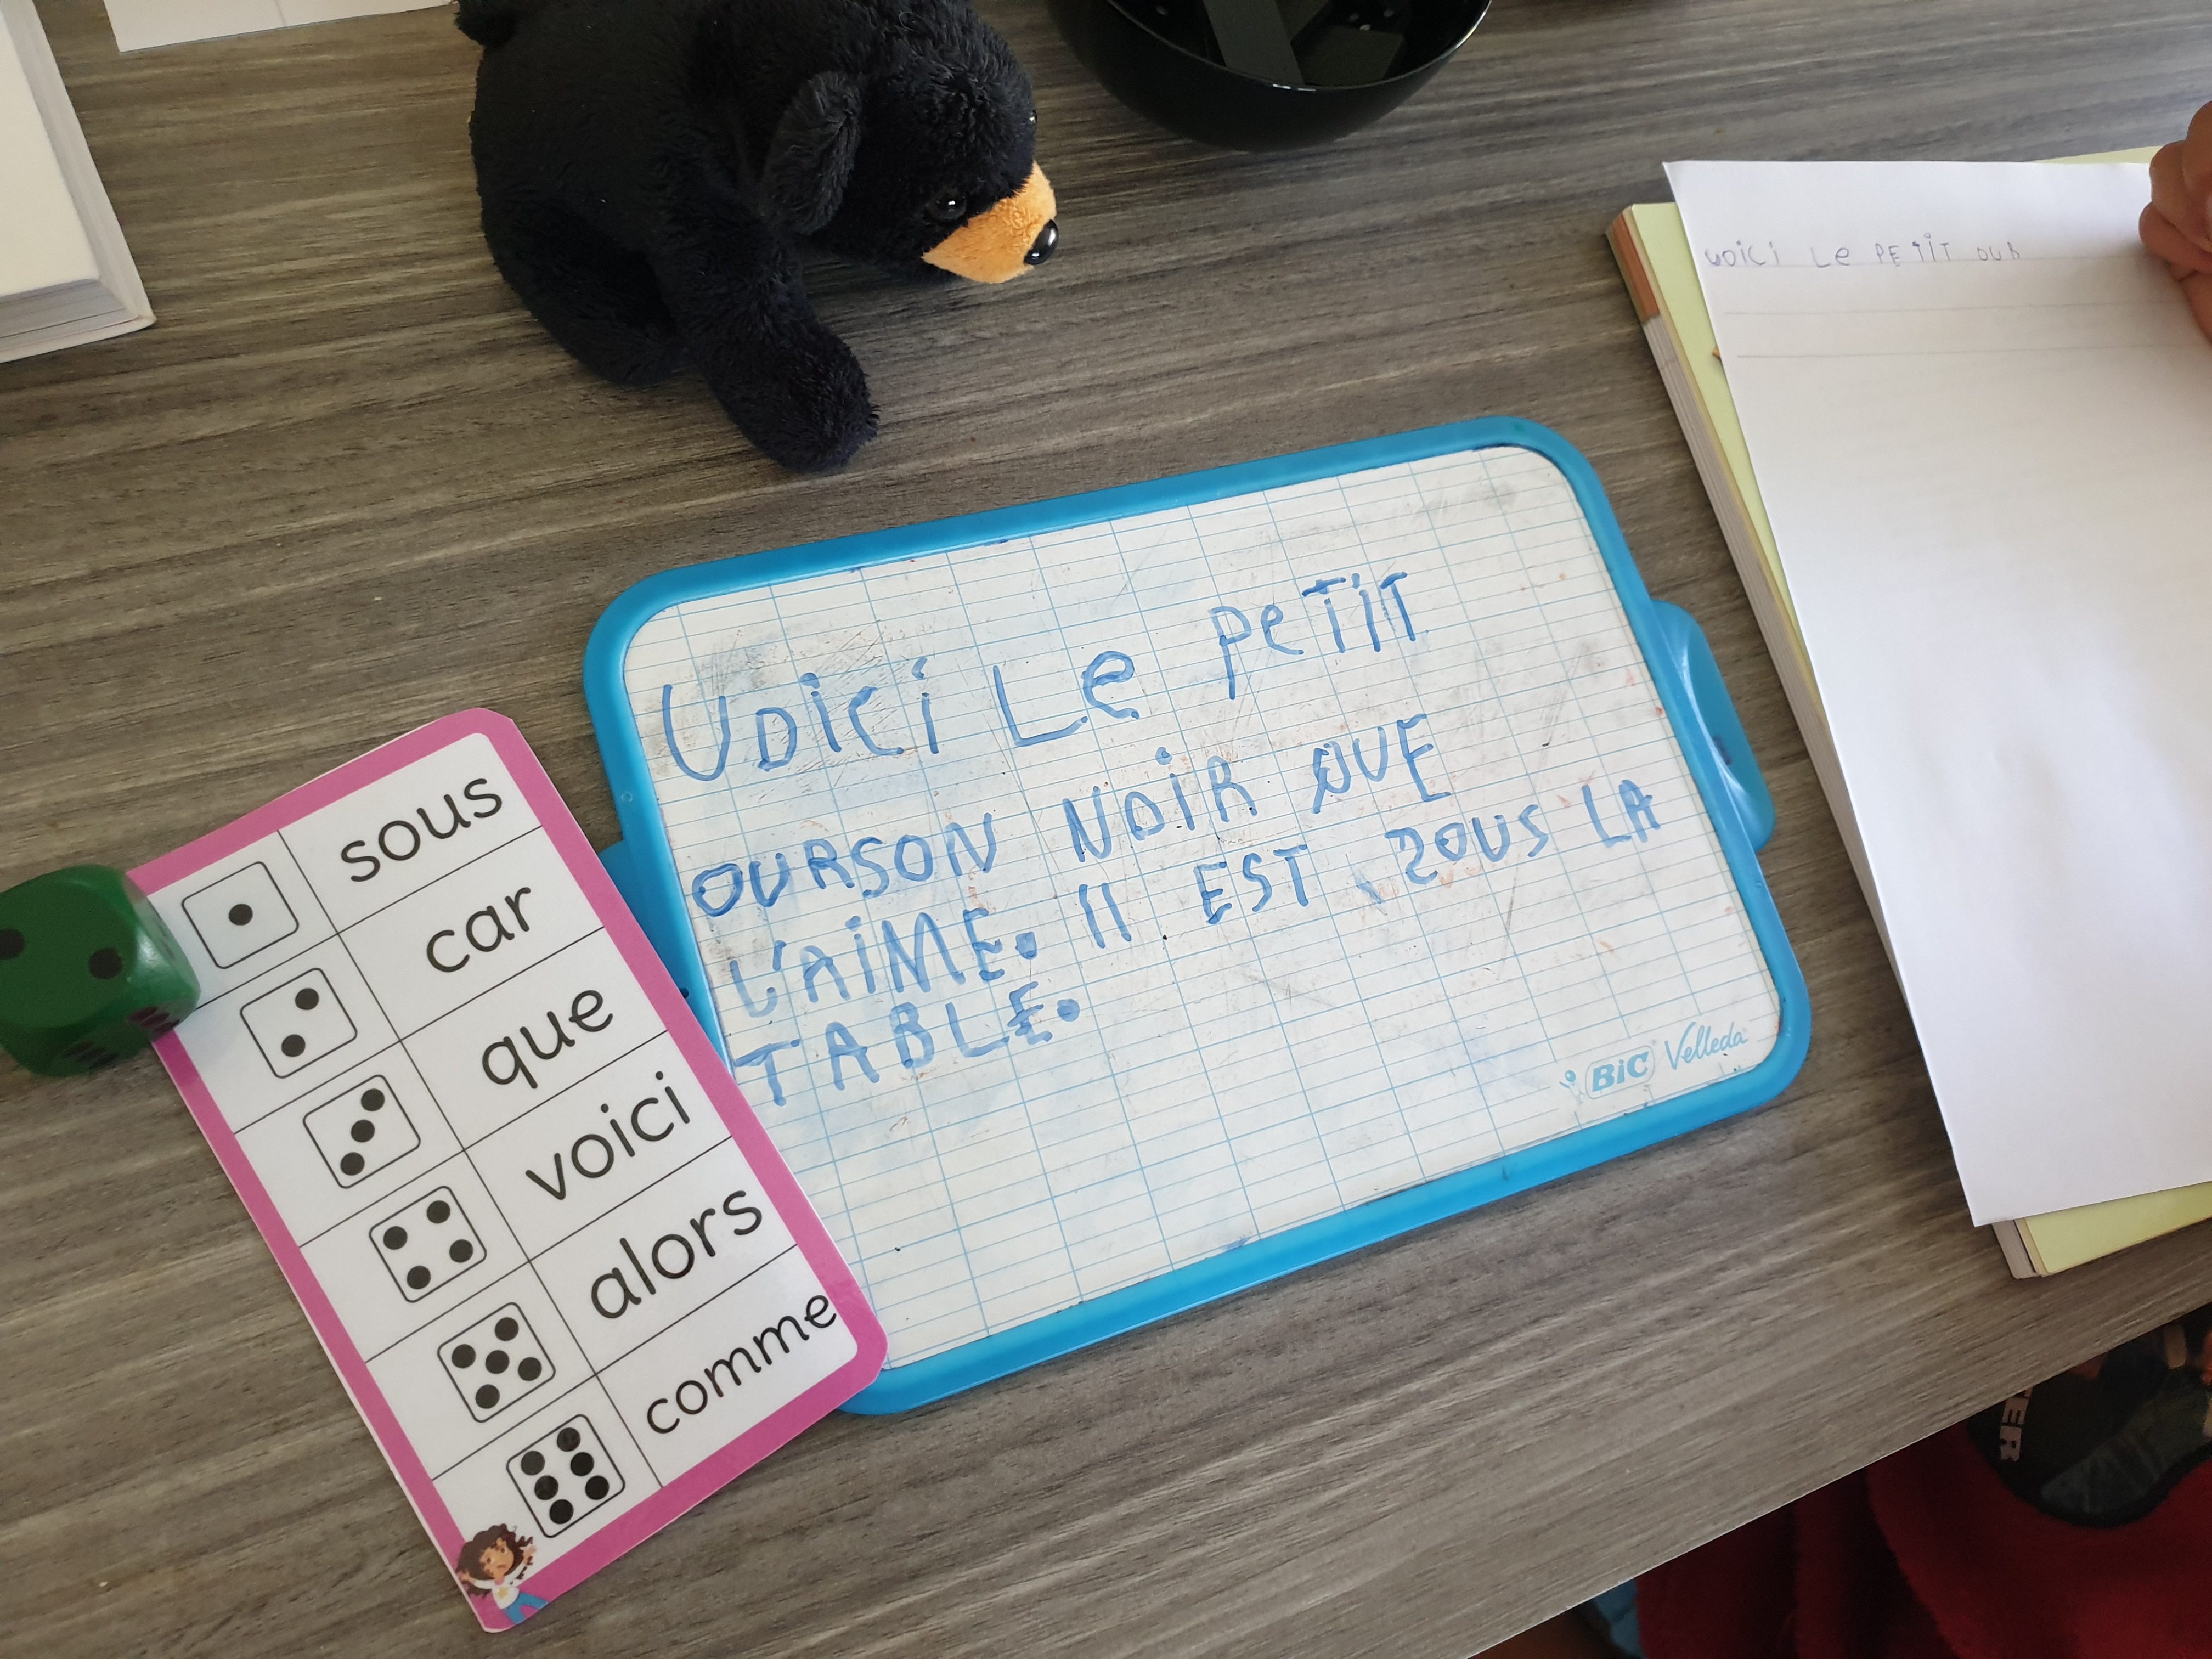 VOiCi Le PeTiT
OURSON NOiR QUE
L'AiME. Il EST SOUS LA
TABLE.
BiC Velleda
sous
car
que
voici
alors
comme
VOiCi Le PETiT OUR